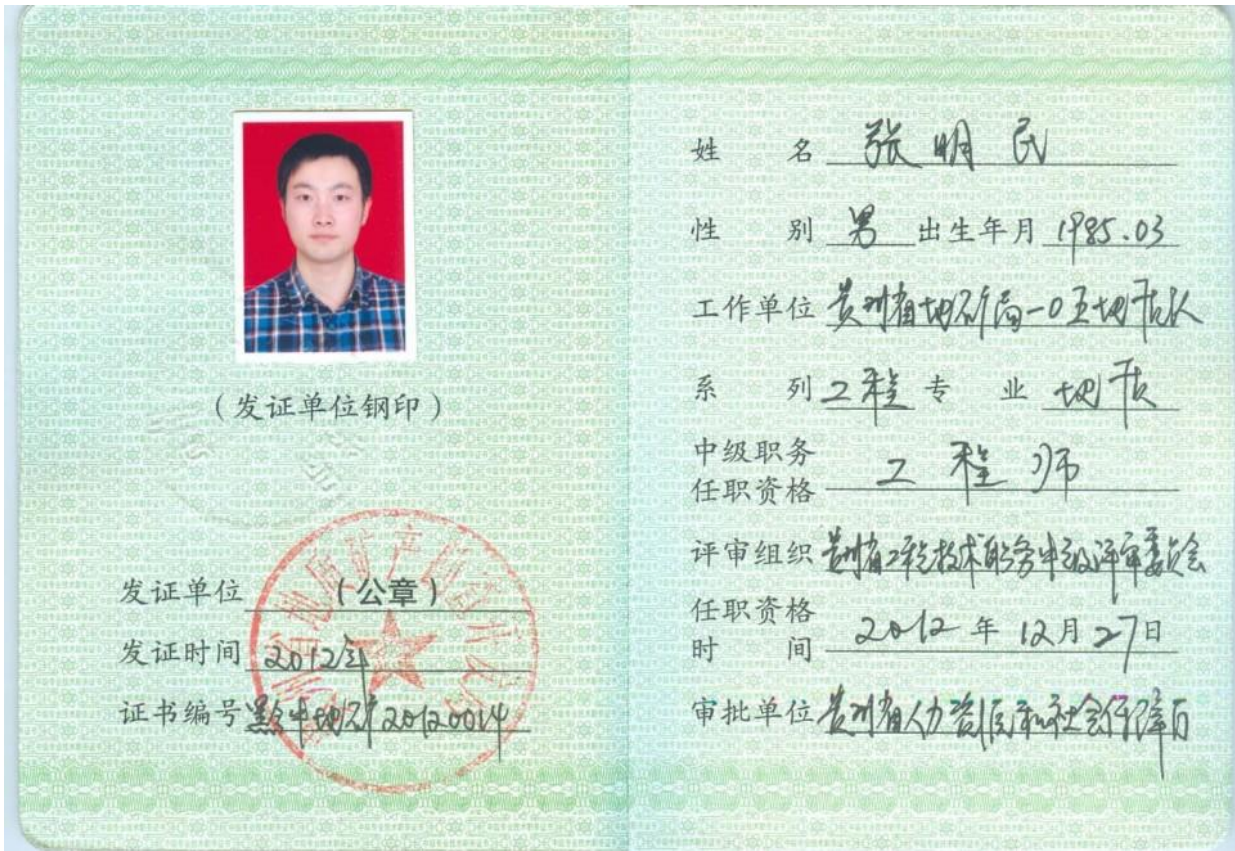 (发证单位钢印)
发证单位 (公章)
发证时间 2012年
证书编号 黔中地矿20120014
姓 名 张明民
性 别 男 出生年月 1985.03
工作单位 贵州省地矿局一0五地质队
系 列 工程 专 业 地质
中级职务
任职资格 工程师
评审组织 贵州省工程技术职务中级评审委员会
任职资格
时 间 2012年12月27日
审批单位 贵州省人力资源和社会保障厅